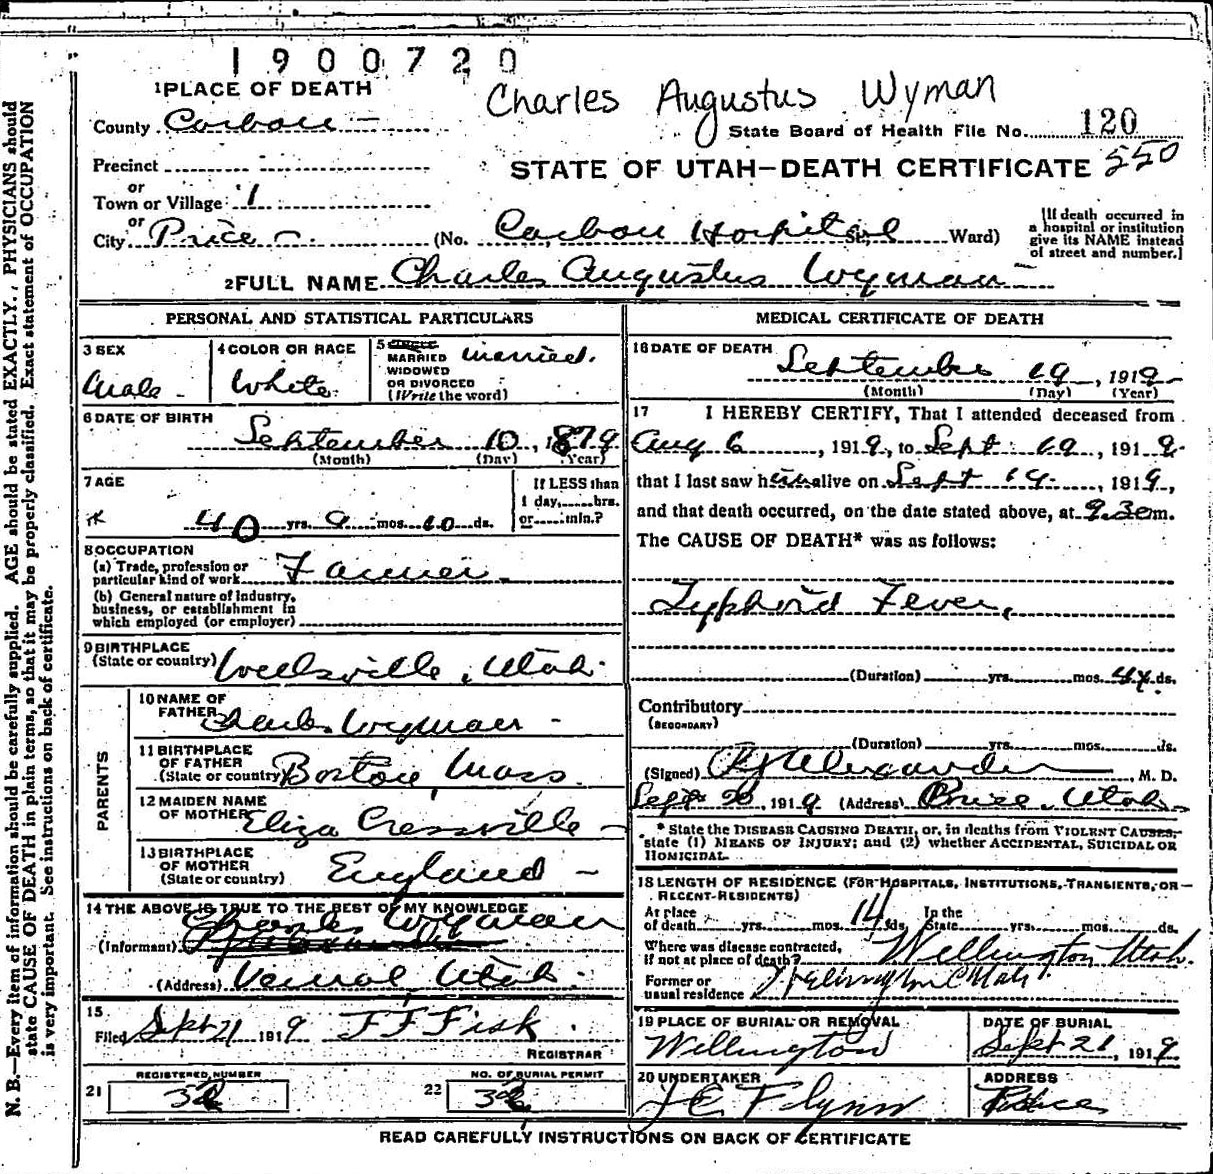 1900720
Charles Augustus Wyman
1 PLACE OF DEATH
County Carbon
State Board of Health File No. 120
Precinct
STATE OF UTAH—DEATH CERTIFICATE 550
or
Town or Village
or
City Price (No. Carbon Hospital St. Ward)
[If death occurred in a hospital or institution give its NAME instead of street and number.]
2 FULL NAME Charles Augustus Wyman
PERSONAL AND STATISTICAL PARTICULARS
3 SEX
Male
4 COLOR OR RACE
White
5 SINGLE
MARRIED
WIDOWED
OR DIVORCED
(Write the word)
married.
6 DATE OF BIRTH
September 10, 1879
(Month) (Day) (Year)
7 AGE
40 yrs. 9 mos. 10 ds.
If LESS than
1 day, hrs.
or min.?
8 OCCUPATION
(a) Trade, profession or
particular kind of work Farmer
(b) General nature of industry,
business, or establishment in
which employed (or employer)
9 BIRTHPLACE
(State or country) Wellsville, Utah.
PARENTS
10 NAME OF
FATHER Charles Wyman
11 BIRTHPLACE
OF FATHER
(State or country) Boston, Mass
12 MAIDEN NAME
OF MOTHER Eliza
13 BIRTHPLACE
OF MOTHER
(State or country) England
14 THE ABOVE IS TRUE TO THE BEST OF MY KNOWLEDGE
Charles Wyman
(Informant)
(Address) Vernal, Utah.
15
Filed Sept 21 1919 J F Fisk
REGISTRAR
21 REGISTERED NUMBER
22 NO. OF BURIAL PERMIT
MEDICAL CERTIFICATE OF DEATH
16 DATE OF DEATH
September 19, 1919
(Month) (Day) (Year)
17 I HEREBY CERTIFY, That I attended deceased from
Aug 6, 1919, to Sept 19, 1919
that I last saw him alive on Sept 19, 1919,
and that death occurred, on the date stated above, at 9.30 m.
The CAUSE OF DEATH* was as follows:
Typhoid Fever,
(Duration) yrs. mos. 44 ds.
Contributory
(SECONDARY)
(Duration) yrs. mos. ds.
(Signed) Alexander, M. D.
Sept 20, 1919 (Address) Price, Utah
* State the DISEASE CAUSING DEATH, or, in deaths from VIOLENT CAUSES,
state (1) MEANS OF INJURY; and (2) whether ACCIDENTAL, SUICIDAL OR
HOMICIDAL.
18 LENGTH OF RESIDENCE (FOR HOSPITALS, INSTITUTIONS, TRANSIENTS, OR
RECENT RESIDENTS)
At place
of death yrs. mos. 14 ds. In the
State yrs. mos. ds.
Where was disease contracted,
if not at place of death? Wellington Utah.
Former or
usual residence Wellington Utah
19 PLACE OF BURIAL OR REMOVAL
Wellington
DATE OF BURIAL
Sept 21, 1919
20 UNDERTAKER
J E Flynn
ADDRESS
Price
READ CAREFULLY INSTRUCTIONS ON BACK OF CERTIFICATE
N. B.—Every item of information should be carefully supplied. AGE should be stated EXACTLY. PHYSICIANS should
state CAUSE OF DEATH in plain terms, so that it may be properly classified. Exact statement of OCCUPATION
is very important. See instructions on back of certificate.